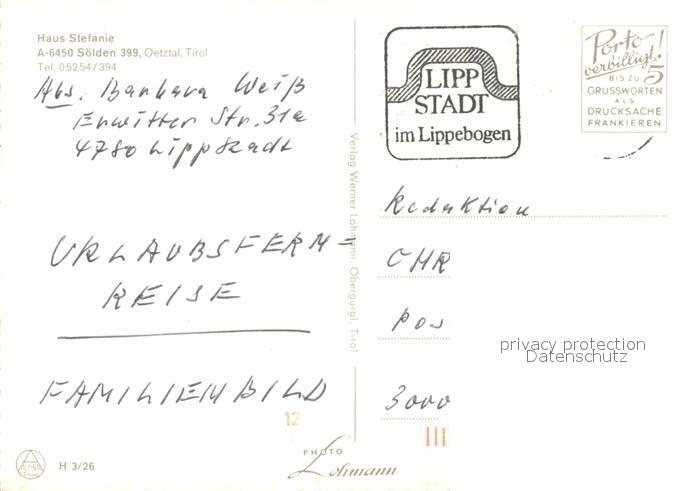 Haus Stefanie
A-6450 Sölden 399, Oetztal, Tirol
Tel. 05254/394
Abs. Barbara Weiß
Erwitter Str. 31a
4780 Lippstadt
URLAUBSFERN=
REISE
FAMILIENBILD
12
H 3/26
Verlag Werner Lohmann, Obergurgl, Tirol
PHOTO
Lohmann
LIPP
STADT
im Lippebogen
Porto
verbilligt!
BIS ZU 5
GRUSSWORTEN
ALS
DRUCKSACHE
FRANKIEREN
Redaktion
Pos
3000
privacy protection
Datenschutz